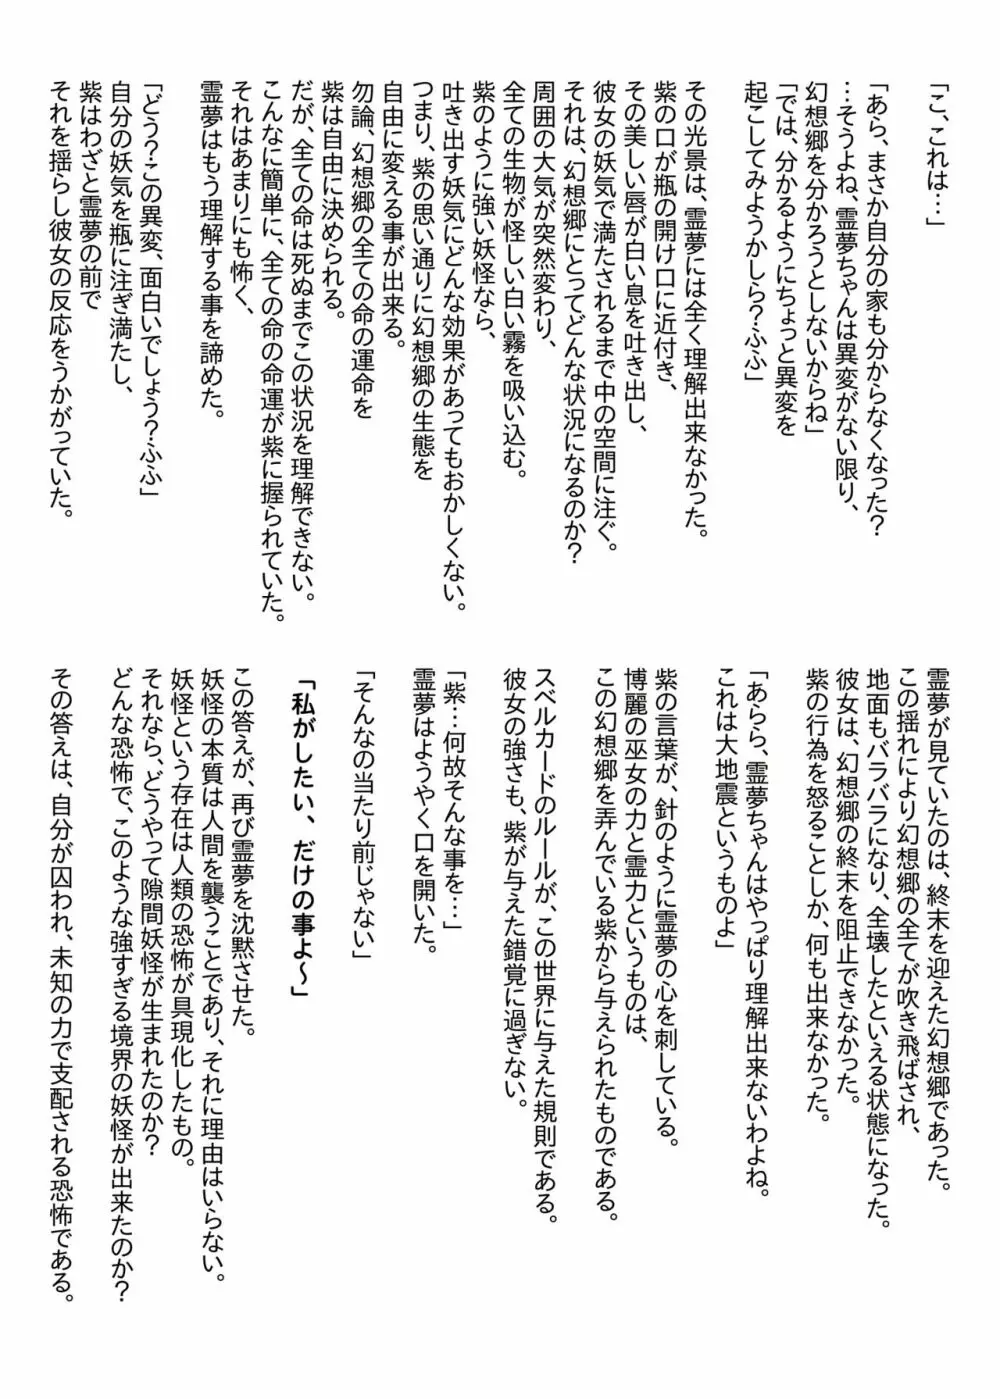 「こ、これは…」
「あら、まさか自分の家も分からなくなった？
…そうよね、霊夢ちゃんは異変がない限り、
幻想郷を分かろうとしないからね」
「では、分かるようにちょっと異変を
起こしてみようかしら？ふふ」
その光景は、霊夢には全く理解出来なかった。
紫の口が瓶の開け口に近付き、
その美しい唇が白い息を吐き出し、
彼女の妖気で満たされるまで中の空間に注ぐ。
それは、幻想郷にとってどんな状況になるのか？
周囲の大気が突然変わり、
全ての生物が怪しい白い霧を吸い込む。
紫のように強い妖怪なら、
吐き出す妖気にどんな効果があってもおかしくない。
つまり、紫の思い通りに幻想郷の生態を
自由に変える事が出来る。
勿論、幻想郷の全ての命の運命を
紫は自由に決められる。
だが、全ての命は死ぬまでこの状況を理解できない。
こんなに簡単に、全ての命の命運が紫に握られていた。
それはあまりにも怖く、
霊夢はもう理解する事を諦めた。
「どう？この異変、面白いでしょう？ふふ」
自分の妖気を瓶に注ぎ満たし、
紫はわざと霊夢の前で
それを揺らし彼女の反応をうかがっていた。
霊夢が見ていたのは、終末を迎えた幻想郷であった。
この揺れにより幻想郷の全てが吹き飛ばされ、
地面もバラバラになり、全壊したといえる状態になった。
彼女は、幻想郷の終末を阻止できなかった。
紫の行為を怒ることしか、何も出来なかった。
「あらら、霊夢ちゃんはやっぱり理解出来ないわよね。
これは大地震というものよ」
紫の言葉が、針のように霊夢の心を刺している。
博麗の巫女の力と霊力というものは、
この幻想郷を弄んでいる紫から与えられたものである。
スペルカードのルールが、この世界に与えた規則である。
彼女の強さも、紫が与えた錯覚に過ぎない。
「紫…何故そんな事を…」
霊夢はようやく口を開いた。
「そんなの当たり前じゃない」
「私がしたい、だけの事よ～」
この答えが、再び霊夢を沈黙させた。
妖怪の本質は人間を襲うことであり、それに理由はいらない。
妖怪という存在は人類の恐怖が具現化したもの。
それなら、どうやって隙間妖怪が生まれたのか？
どんな恐怖で、このような強すぎる境界の妖怪が出来たのか？
その答えは、自分が囚われ、未知の力で支配される恐怖である。